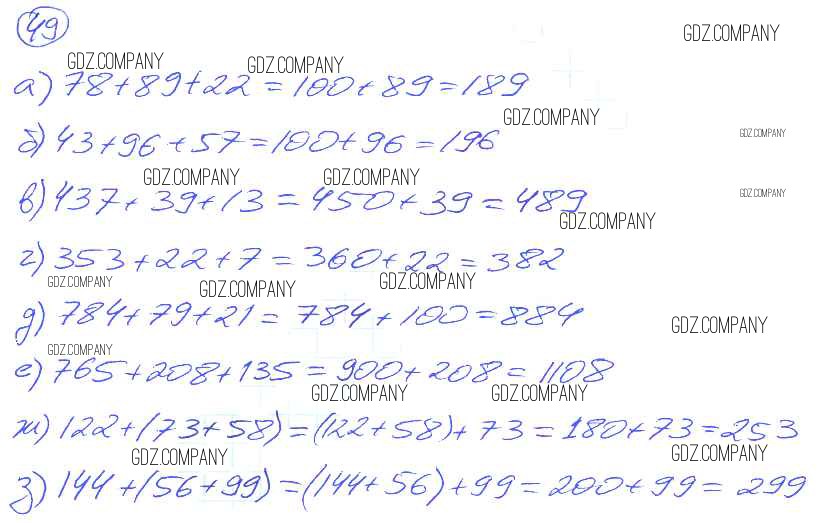 49
GDZ.COMPANY
GDZ.COMPANY GDZ.COMPANY
а) 78+89+22=100+89=189
GDZ.COMPANY
б) 43+96+57=100+96=196
GDZ.COMPANY
GDZ.COMPANY GDZ.COMPANY
GDZ.COMPANY
в) 437+39+13=450+39=489
GDZ.COMPANY
г) 353+22+7=360+22=382
GDZ.COMPANY GDZ.COMPANY GDZ.COMPANY
д) 784+79+21=784+100=884
GDZ.COMPANY
GDZ.COMPANY
е) 765+208+135=900+208=1108
GDZ.COMPANY GDZ.COMPANY
ж) 122+(73+58)=(122+58)+73=180+73=253
GDZ.COMPANY GDZ.COMPANY
з) 144+(56+99)=(144+56)+99=200+99=299